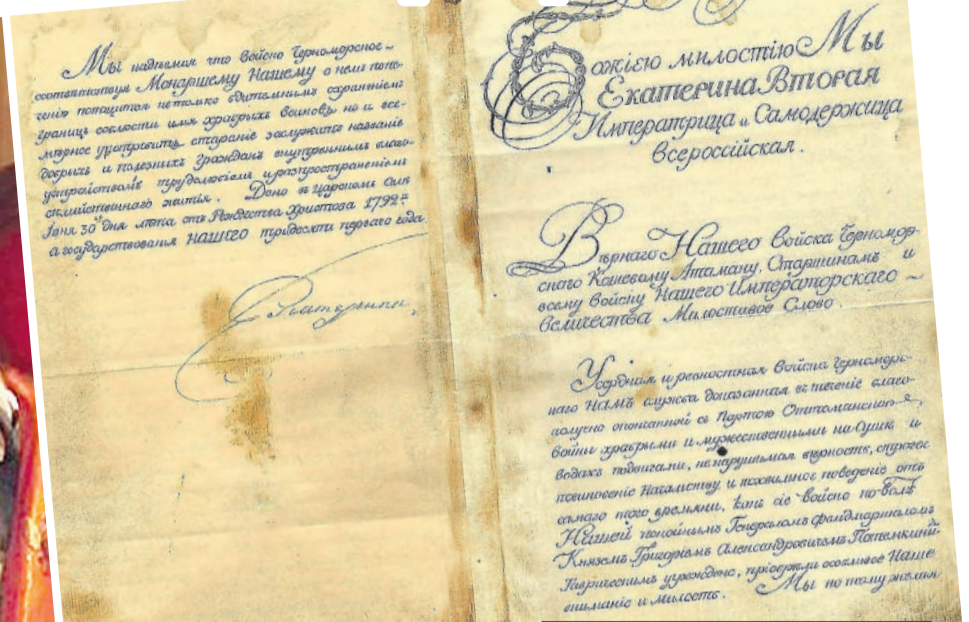 Мы надѣемся что Войско Черноморское –
соотвѣтствуя Монаршему Нашему о немъ попе-
ченію потщится не только бдительнымъ охраненіемъ
границъ соблюсти имя храбрыхъ воиновъ но и все-
мѣрное употребить стараніе заслужить названіе
добрыхъ и полезныхъ гражданъ внутреннимъ благо-
устройствомъ трудолюбіемъ и распространеніемъ
семейственнаго житія. Дано въ Царскомъ Селѣ
Іюня 30 дня лѣта отъ Рождества Христова 1792го
а государствованія НАШЕГО тридесяти перваго года
Екатерина
Божіею милостію Мы
Екатерина Вторая
Императрица и Самодержица
Всероссійская.
Вѣрнаго Нашего Войска Черномор-
скаго Кошевому Атаману, Старшинамъ и
всему Войску Нашего Императорскаго –
Величества Милостивое Слово.
Усердная и ревностная Войска Черноморс-
каго НАМЪ служба доказанная въ теченіе благо-
получно оконченной съ Портою Оттоманской
войны храбрыми и мужественными на сушѣ и
водахъ подвигами, ненарушимая вѣрность, строгое
повиновеніе Начальству и похвальное поведеніе отъ
самаго того времяни, какъ сіе войско по волѣ
Нашей покойнымъ Генераломъ фелдмаршаломъ
Княземъ Григоріемъ Александровичемъ Потемкинъ-
Таврическимъ учреждено, пріобрѣли особливое Наше
вниманіе и милость. Мы по тому желая